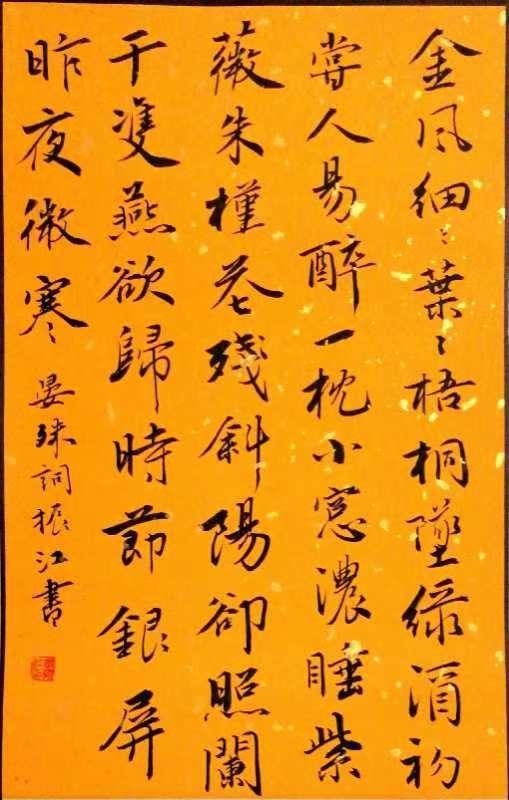 金風細〻葉〻梧桐墜綠酒初
嘗人易醉一枕小窓濃睡紫
薇朱槿花殘斜陽卻照闌
干雙燕欲歸時節銀屏
昨夜微寒 晏殊詞振江書